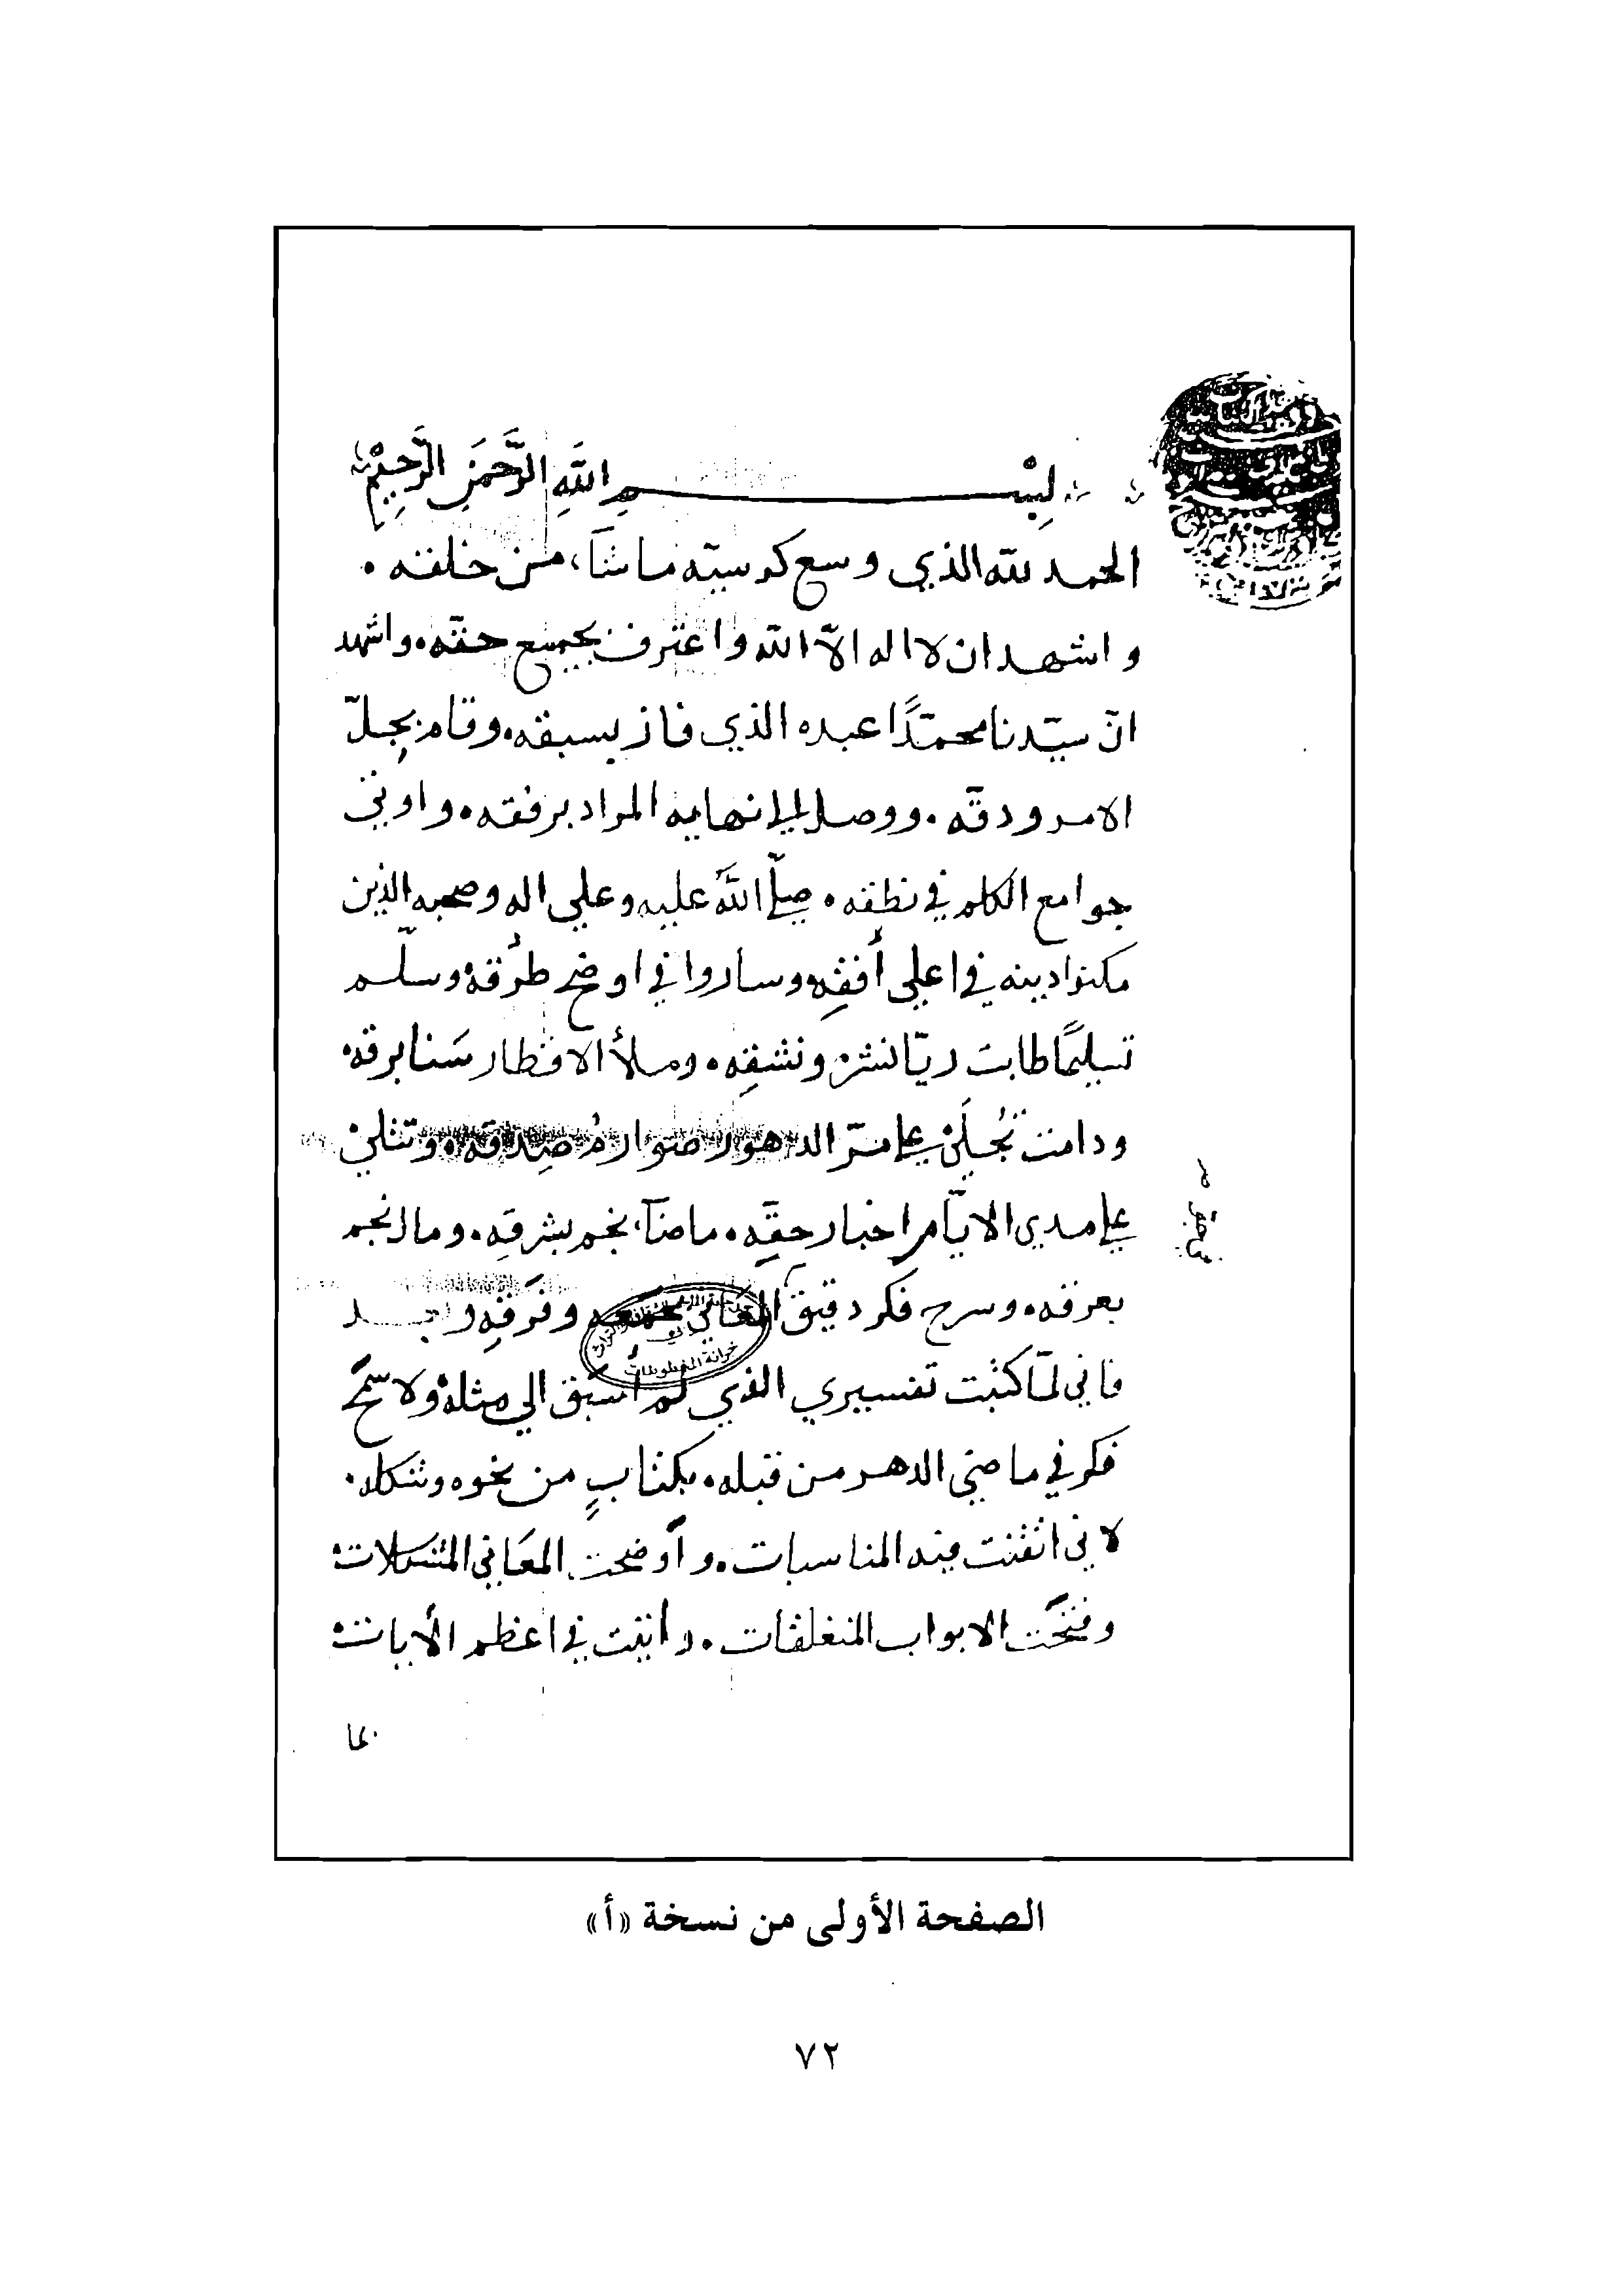 بِسْمِ اللَّهِ الرَّحْمَنِ الرَّحِيمِ
الحمد لله الذي وسع كرسيّه ما شآء من خلقه .
و اشهد ان لا اله الّا الله واعترف بجميع حقّه . واشهد
انّ سيّدنا محمّدًا عبده الذي فاز بسبقه . وقام بجلّ
الامر ودقّه . ووصل الى نهاية المراد برفقه . واوتي
جوامع الكلم في نطقه . صلّى اللَّه عليه وعلى اله وصحبه الذين
مكنوا دينه في اعلى أفقِه وساروا في اوضح طرُقه وسلّم
تسليمًا طابت ريّا نشره ونشقِه . وملأ الاقطار سَنا برقه .
ودامت تُجلَى على مرّ الدهور صوارمُ صِدقه . وتتلى
على مدى الايّام اخبار حقّه . ما ضآء نجم بشرقِه . ومال نجم
بغربه . وسرح فكر دقيق المعَاني بجمعه وفَرَقِه وبعد
فاني لمّا كتبت تفسيري الذي لم أُسبَق الى مثله ولا سمح
فكر في ماضي الدهر من قبله . بكتابٍ من نحوه وشكله .
لاني اتقنت فيه المناسبات . وأوضحت المعَاني المشكلات
وفتحت الابواب المنغلقات . وأتيت في اعظم الأيات
بما
الصفحة الأولى من نسخة «أ»
٧٢